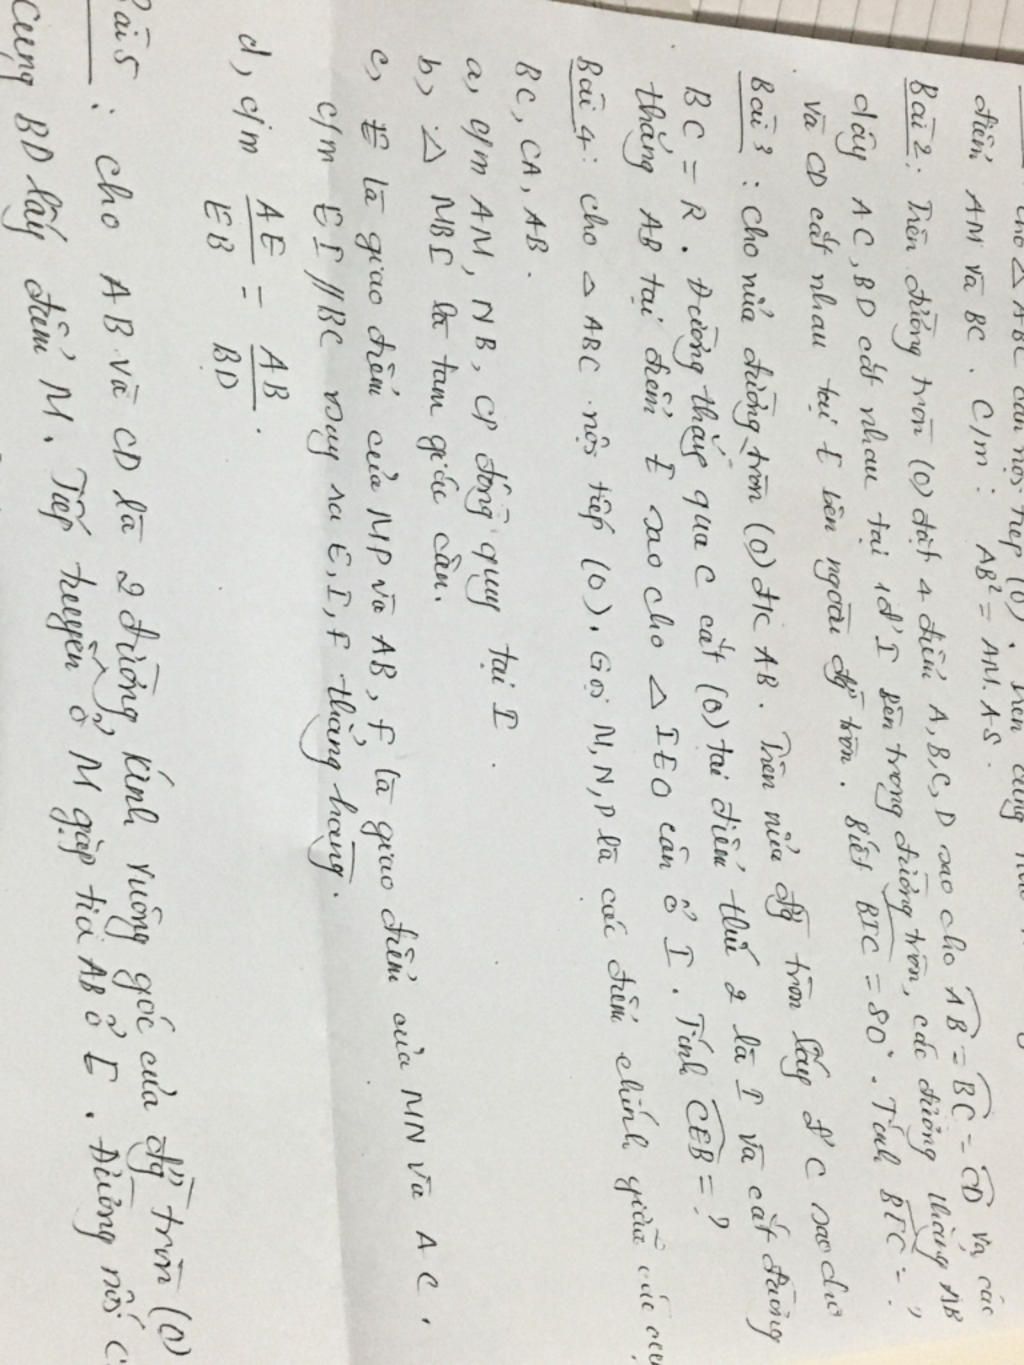 cho △ ABC cân nội tiếp (O). Trên cung
điểm AM và BC. C/m: AB² = AM.AS.
Bài 2: Trên đường tròn (O) đặt 4 điểm A,B,C,D sao cho AB = BC = CD và các
dây AC, BD cắt nhau tại 1đ' I bên trong đường tròn, các đường thẳng AB
và CD cắt nhau tại E bên ngoài đg tròn. Biết BIC = 80°. Tính BEC = ?
Bài 3: Cho nửa đường tròn (O) đk AB. Trên nửa đg tròn lấy đ' C sao cho
BC = R. Đường thẳng qua C cắt (O) tại điểm thứ 2 là I và cắt đường
thẳng AB tại điểm E sao cho △ IEO cân ở I. Tính CEB = ?
Bài 4: Cho △ ABC nội tiếp (O). Gọi M, N, P là các điểm chính giữa các cung
BC, CA, AB.
a, c/m AM, NB, CP đồng quy tại I.
b, △ MBI là tam giác cân.
c, E là giao điểm của MP và AB, F là giao điểm của MN và AC.
c/m EI // BC suy ra E, I, F thẳng hàng.
d, c/m AE/EB = AB/BD.
Bài 5: Cho AB và CD là 2 đường kính vuông góc của đg tròn (O)
cung BD lấy điểm M. Tiếp tuyến ở M gặp tia AB ở E. Đường nối C